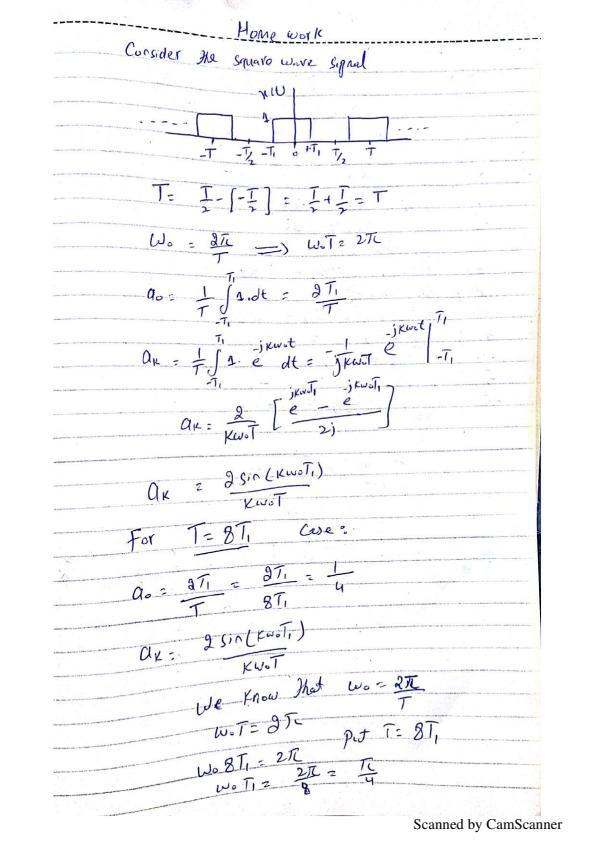 Home work
Consider the square wave signal
x(t)
1
..... -T -T/2 -T₁ 0 +T₁ T/2 T ....
T = T/2 - [-T/2] = T/2 + T/2 = T
ω₀ = 2π/T ⟹ ω₀T = 2π
a₀ = 1/T ∫_{-T₁}^{T₁} 1.dt = 2T₁/T
aₖ = 1/T ∫_{-T₁}^{T₁} 1. e^{-jkω₀t} dt = -1/(jkω₀T) e^{-jkω₀t} |_{-T₁}^{T₁}
aₖ = 2/(kω₀T) [(e^{jkω₀T₁} - e^{-jkω₀T₁})/2j]
aₖ = 2 sin(kω₀T₁)/(kω₀T)
For T = 8T₁ Case :
a₀ = 2T₁/T = 2T₁/8T₁ = 1/4
aₖ = 2 sin(kω₀T₁)/(kω₀T)
We know that ω₀ = 2π/T
ω₀T = 2π Put T = 8T₁
ω₀8T₁ = 2π
ω₀T₁ = 2π/8 = π/4
Scanned by CamScanner